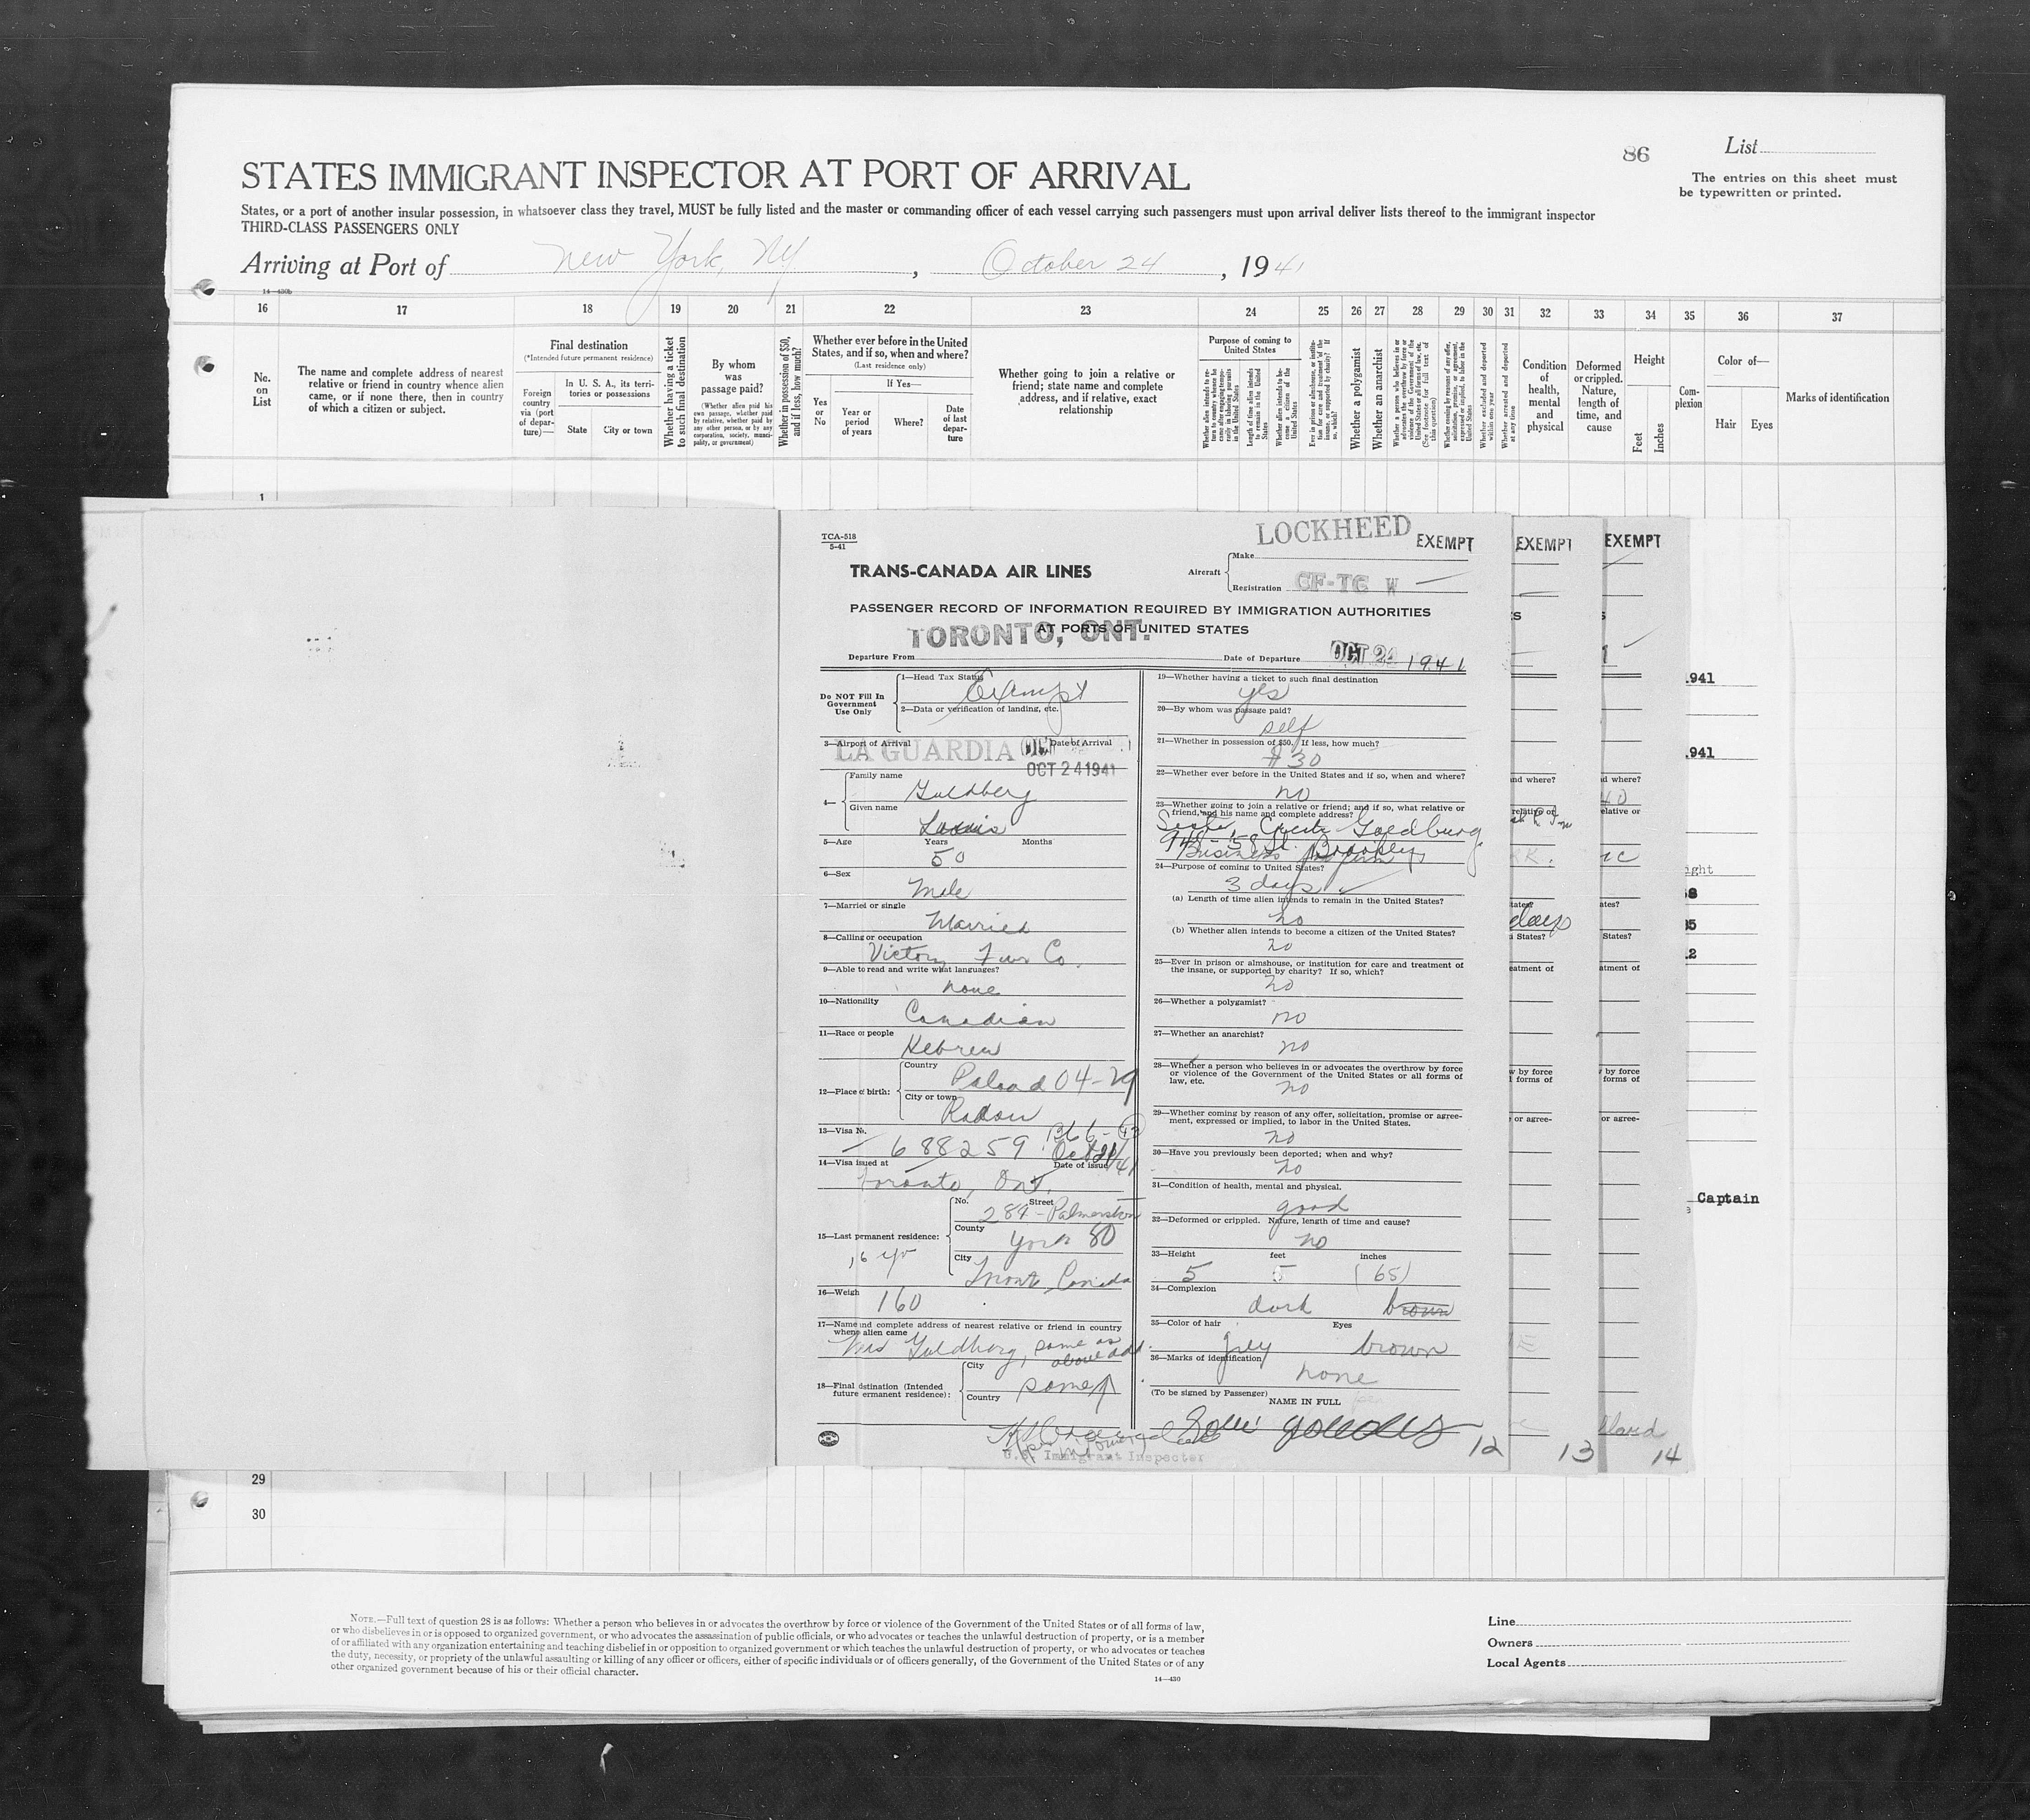 86
List
The entries on this sheet must
be typewritten or printed.
STATES IMMIGRANT INSPECTOR AT PORT OF ARRIVAL
States, or a port of another insular possession, in whatsoever class they travel, MUST be fully listed and the master or commanding officer of each vessel carrying such passengers must upon arrival deliver lists thereof to the immigrant inspector
THIRD-CLASS PASSENGERS ONLY
Arriving at Port of New York, NY, October 24, 1941
14-430b
16 17 18 19 20 21 22 23 24 25 26 27 28 29 30 31 32 33 34 35 36 37
No. on List
The name and complete address of nearest
relative or friend in country whence alien
came, or if none there, then in country
of which a citizen or subject.
Final destination
(*Intended future permanent residence)
Foreign
country
via (port
of depar-
ture)—
In U. S. A., its terri-
tories or possessions
State
City or town
Whether having a ticket
to such final destination
By whom
was
passage paid?
(Whether alien paid his
own passage, whether paid
by relative, whether paid by
any other person, or by any
corporation, society, munici-
pality, or government)
Whether in possession of $50,
and if less, how much?
Whether ever before in the United
States, and if so, when and where?
(Last residence only)
If Yes—
Yes
or
No
Year or
period
of years
Where?
Date
of last
depar-
ture
Whether going to join a relative or
friend; state name and complete
address, and if relative, exact
relationship
Purpose of coming to
United States
Whether a polygamist
Whether an anarchist
Condition
of
health,
mental
and
physical
Deformed
or crippled.
Nature,
length of
time, and
cause
Height
Feet
Inches
Com-
plexion
Color of—
Hair
Eyes
Marks of identification
1
TCA-518
5-41
TRANS-CANADA AIR LINES
LOCKHEED
EXEMPT
Aircraft
Make
Registration CF-TG W
PASSENGER RECORD OF INFORMATION REQUIRED BY IMMIGRATION AUTHORITIES
AT PORTS OF UNITED STATES
TORONTO, ONT.
Departure From
Date of Departure OCT 24 1941
Do NOT Fill In
Government
Use Only
1—Head Tax Status
Exempt
2—Data or verification of landing, etc.
3—Airport of Arrival
Date of Arrival
LA GUARDIA
OCT 24 1941
4—
Family name
Goldberg
Given name
Louis
5—Age Years Months
50
6—Sex
Male
7—Married or single
Married
8—Calling or occupation
Victory Fur Co.
9—Able to read and write what languages?
none
10—Nationality
Canadian
11—Race or people
Hebrew
12—Place of birth:
Country
Poland 04-29
City or town
Radom
13—Visa No.
688259
14—Visa issued at
Date of issue
Toronto, Ont.
15—Last permanent residence:
No. Street
284 - Palmerston
County
York 80
City
Toronto Canada
16 yr
16—Weigh
160
17—Name and complete address of nearest relative or friend in country
whence alien came
Mrs Goldberg, same as
above add.
18—Final destination (Intended
future permanent residence):
City
same
Country
U.S. Immigrant Inspector
19—Whether having a ticket to such final destination
yes
20—By whom was passage paid?
self
21—Whether in possession of $50. If less, how much?
$30
22—Whether ever before in the United States and if so, when and where?
no
23—Whether going to join a relative or friend; and if so, what relative or
friend, and his name and complete address?
Goldburg
Brooklyn
Business
24—Purpose of coming to United States?
3 days
(a) Length of time alien intends to remain in the United States?
no
(b) Whether alien intends to become a citizen of the United States?
no
25—Ever in prison or almshouse, or institution for care and treatment of
the insane, or supported by charity? If so, which?
no
26—Whether a polygamist?
no
27—Whether an anarchist?
no
28—Whether a person who believes in or advocates the overthrow by force
or violence of the Government of the United States or all forms of
law, etc.
no
29—Whether coming by reason of any offer, solicitation, promise or agree-
ment, expressed or implied, to labor in the United States.
no
30—Have you previously been deported; when and why?
no
31—Condition of health, mental and physical.
good
32—Deformed or crippled. Nature, length of time and cause?
no
33—Height feet inches
5 5 (65)
34—Complexion
dark brown
35—Color of hair Eyes
grey brown
36—Marks of identification
none
(To be signed by Passenger)
NAME IN FULL
12
EXEMPT
days
13
EXEMPT
14
1941
1941
Captain
29
30
NOTE.—Full text of question 28 is as follows: Whether a person who believes in or advocates the overthrow by force or violence of the Government of the United States or of all forms of law,
or who disbelieves in or is opposed to organized government, or who advocates the assassination of public officials, or who advocates or teaches the unlawful destruction of property, or is a member
of or affiliated with any organization entertaining and teaching disbelief in or opposition to organized government or which teaches the unlawful destruction of property, or who advocates or teaches
the duty, necessity, or propriety of the unlawful assaulting or killing of any officer or officers, either of specific individuals or of officers generally, of the Government of the United States or of any
other organized government because of his or their official character.
14—430
Line
Owners
Local Agents